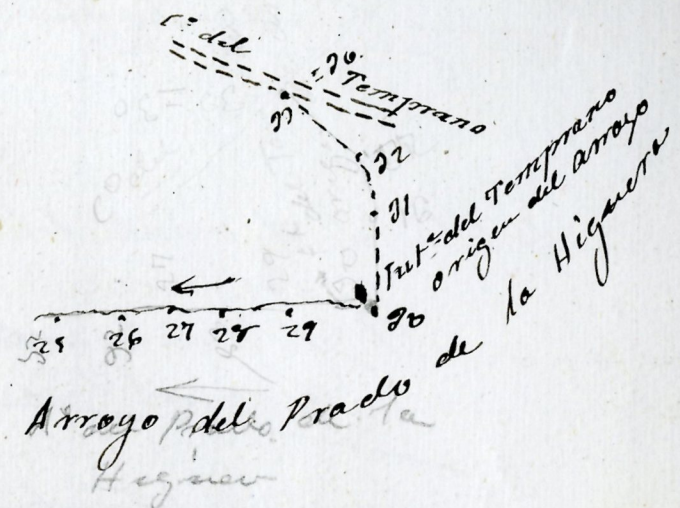 C.º del
Temprano
30
33
32
31
Fut.ᵉ del Temprano
origen del arroyo
30
29
28
27
26
25
Arroyo del Prado de la Higuera